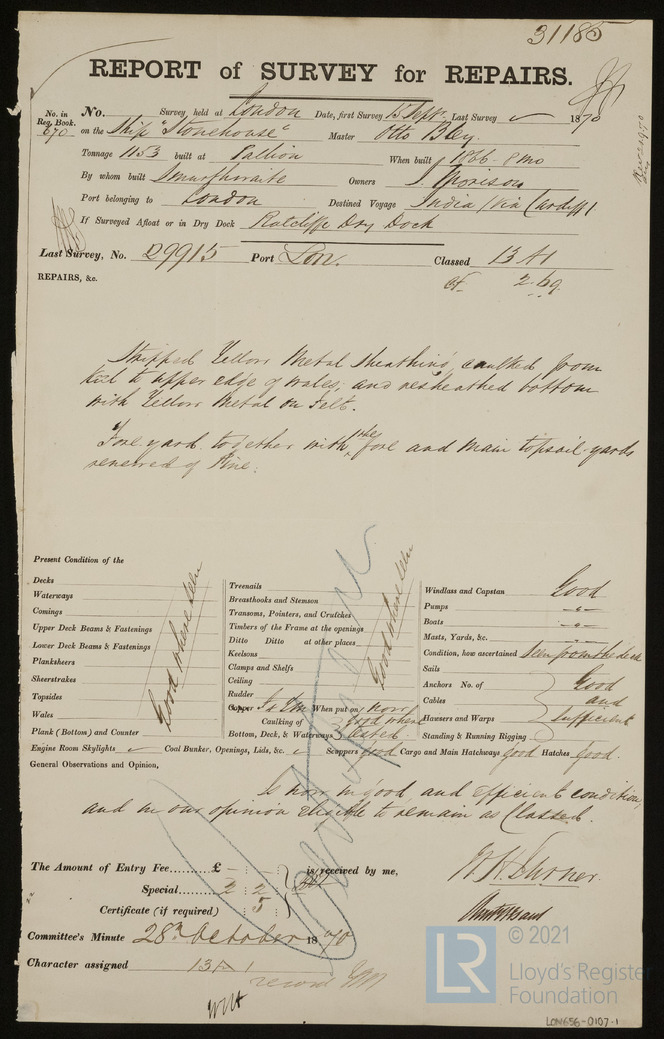 31185
REPORT of SURVEY for REPAIRS.
No. in Reg. Book. No. Survey held at London Date, first Survey 15 Sept. Last Survey 1870
670 on the Ship "Stonehouse" Master Otto Bley.
Tonnage 1153 built at Pallion When built 1866 - 8 mo
By whom built Owners J. Morison
Port belonging to London Destined Voyage India (Via Cardiff)
If Surveyed Afloat or in Dry Dock Ratcliffe Dry Dock
Last Survey, No. 29915 Port Lon. Classed 13 A1
REPAIRS, &c.
Stripped Yellow Metal Sheathing, caulked from
keel to upper edge of wales, and resheathed bottom
with Yellow Metal on Felt.
Fore yard together with the fore and main topsail yards
renewed of Pine.
Present Condition of the
Decks
Waterways
Comings
Upper Deck Beams & Fastenings
Lower Deck Beams & Fastenings
Planksheers
Sheerstrakes
Topsides
Wales
Plank (Bottom) and Counter
Good where seen
Treenails
Breasthooks and Stemson
Transoms, Pointers, and Crutches
Timbers of the Frame at the openings
Ditto Ditto at other places
Keelsons
Clamps and Shelfs
Ceiling
Rudder
Copper When put on now
Caulking of Bottom, Deck, & Waterways good where tested
Good where seen
Windlass and Capstan Good
Pumps -"-
Boats -"-
Masts, Yards, &c. -"-
Condition, how ascertained Seen from the deck
Sails
Anchors No. of Good
Cables and
Hawsers and Warps sufficient
Standing & Running Rigging
Engine Room Skylights Coal Bunker, Openings, Lids, &c. Scuppers good Cargo and Main Hatchways good Hatches Good.
General Observations and Opinion,
Is now in good and efficient condition,
and in our opinion eligible to remain as Classed.
The Amount of Entry Fee £ - : is received by me,
Special 2 : 2
Certificate (if required) 5
Committee's Minute 28th October 1870
Character assigned 13 A 1
LR © 2021
Lloyd's Register
Foundation
LON656-0107-1